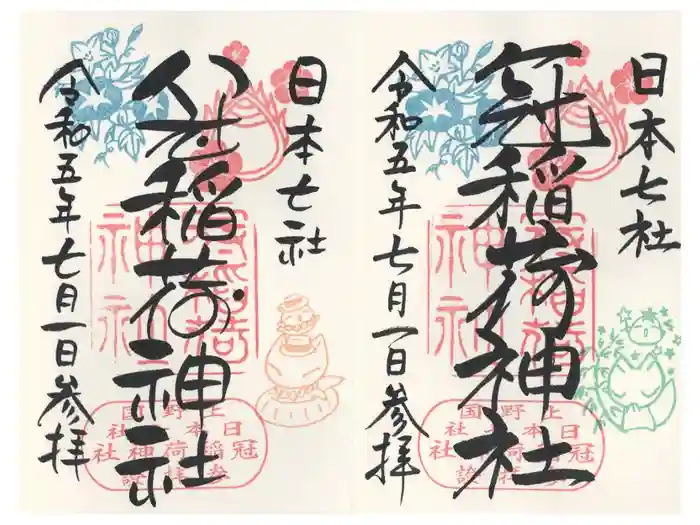 日本七社
冠稲荷神社
令和五年七月一日参拝
上野国
日本七社
冠稲荷神社
日本七社
冠稲荷神社
令和五年七月一日参拝
上野国
日本七社
冠稲荷神社